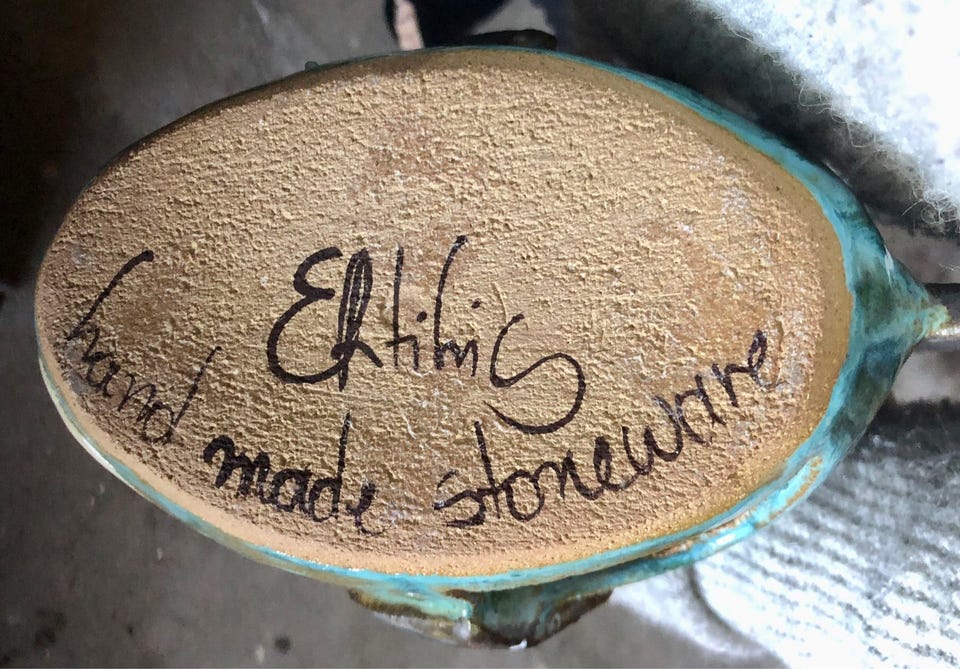 Eftihis
hand made stoneware